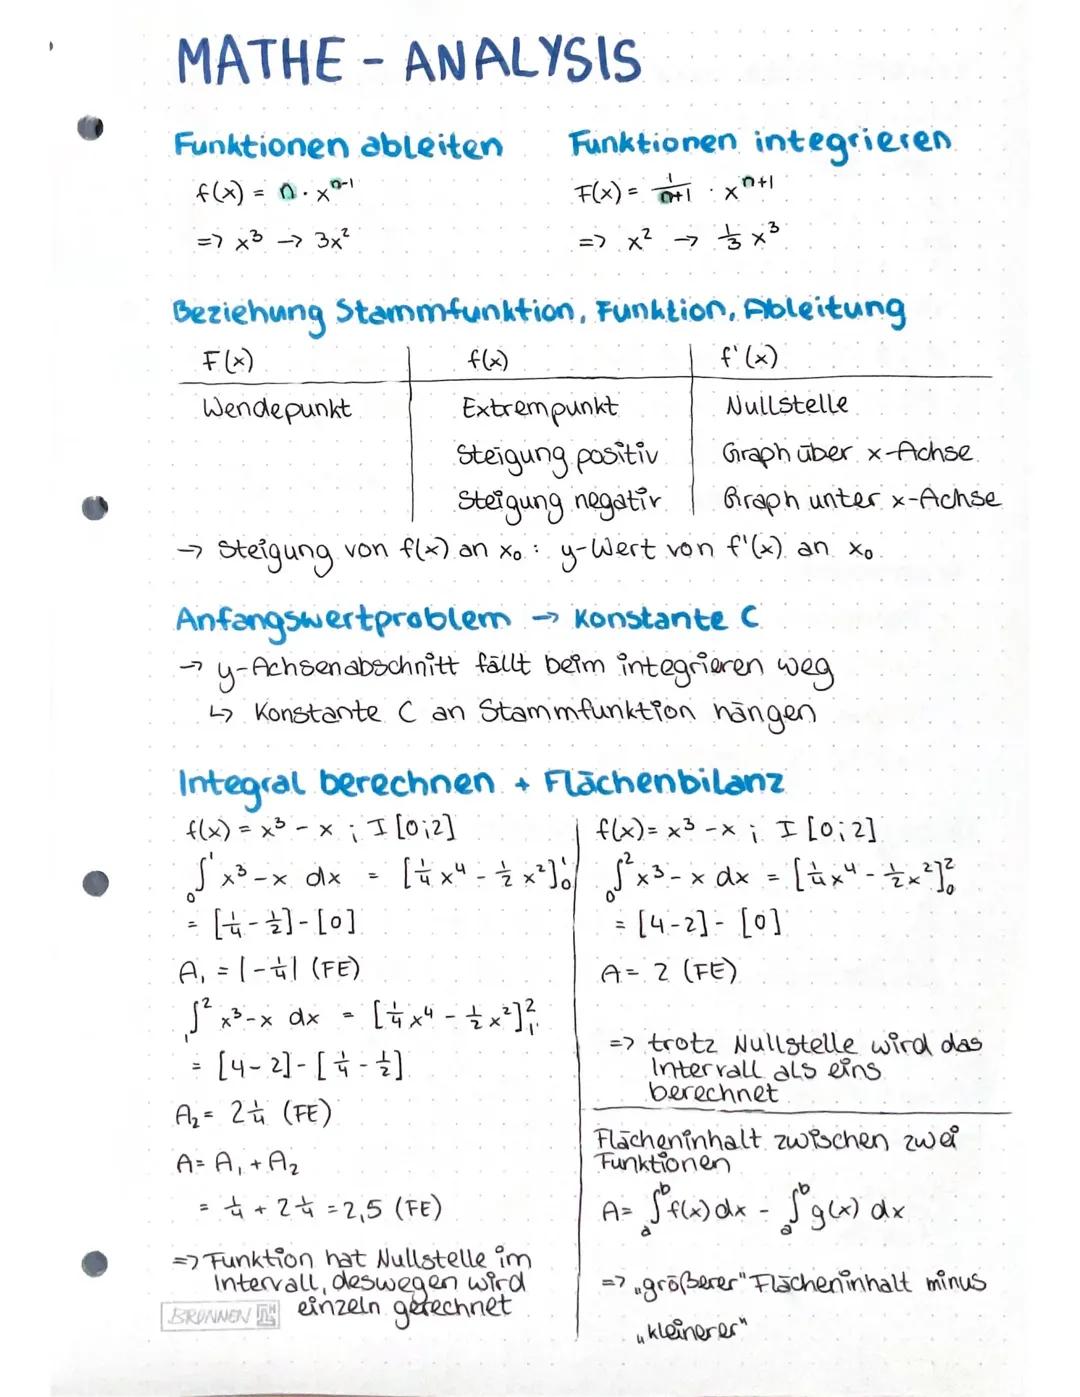 MATHE - ANALYSIS
Funktionen ableiten
f(x) = n · x^(n-1)
=> x³ -> 3x²
Funktionen integrieren
F(x) = 1/(n+1) · x^(n+1)
=> x² -> 1/3 x³
Beziehung Stammfunktion, Funktion, Ableitung
F(x) | f(x) | f'(x)
Wendepunkt | Extrempunkt | Nullstelle
Steigung positiv | Graph über x-Achse
Steigung negativ | Graph unter x-Achse
-> Steigung von f(x) an x₀ : y-Wert von f'(x) an x₀
Anfangswertproblem -> Konstante C
-> y-Achsenabschnitt fällt beim integrieren weg
↳ Konstante C an Stammfunktion hängen
Integral berechnen + Flächenbilanz
f(x) = x³ - x ; I [0;2]
₀∫¹ x³-x dx = [1/4 x⁴ - 1/2 x²]₀¹
= [1/4 - 1/2] - [0]
A₁ = |-1/4| (FE)
₁∫² x³-x dx = [1/4 x⁴ - 1/2 x²]₁²
= [4-2] - [1/4 - 1/2]
A₂ = 2 1/4 (FE)
A = A₁ + A₂
= 1/4 + 2 1/4 = 2,5 (FE)
=> Funktion hat Nullstelle im
Intervall, deswegen wird
einzeln gerechnet
BRUNNEN
f(x) = x³ - x ; I [0;2]
₀∫² x³ - x dx = [1/4 x⁴ - 1/2 x²]₀²
= [4-2] - [0]
A = 2 (FE)
=> trotz Nullstelle wird das
Intervall als eins
berechnet
Flächeninhalt zwischen zwei
Funktionen
A = ₐ∫ᵇ f(x) dx - ₐ∫ᵇ g(x) dx
=> „größerer" Flächeninhalt minus
„kleinerer"